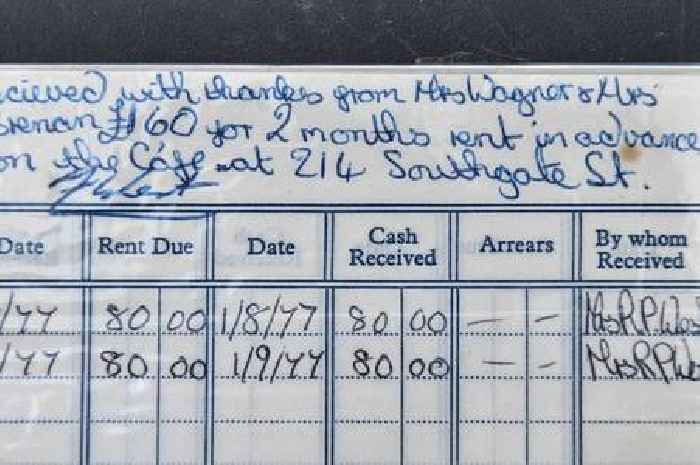 recieved with thanks from Mrs Wagner & Mrs
Brenan £160 for 2 months rent in advance
on the Cafe at 214 Southgate St.
Date Rent Due Date Cash Received Arrears By whom Received
/77 80 00 1/8/77 80 00 — — Mrs R.P.
/77 80 00 1/9/77 80 00 — — Mrs R.P.